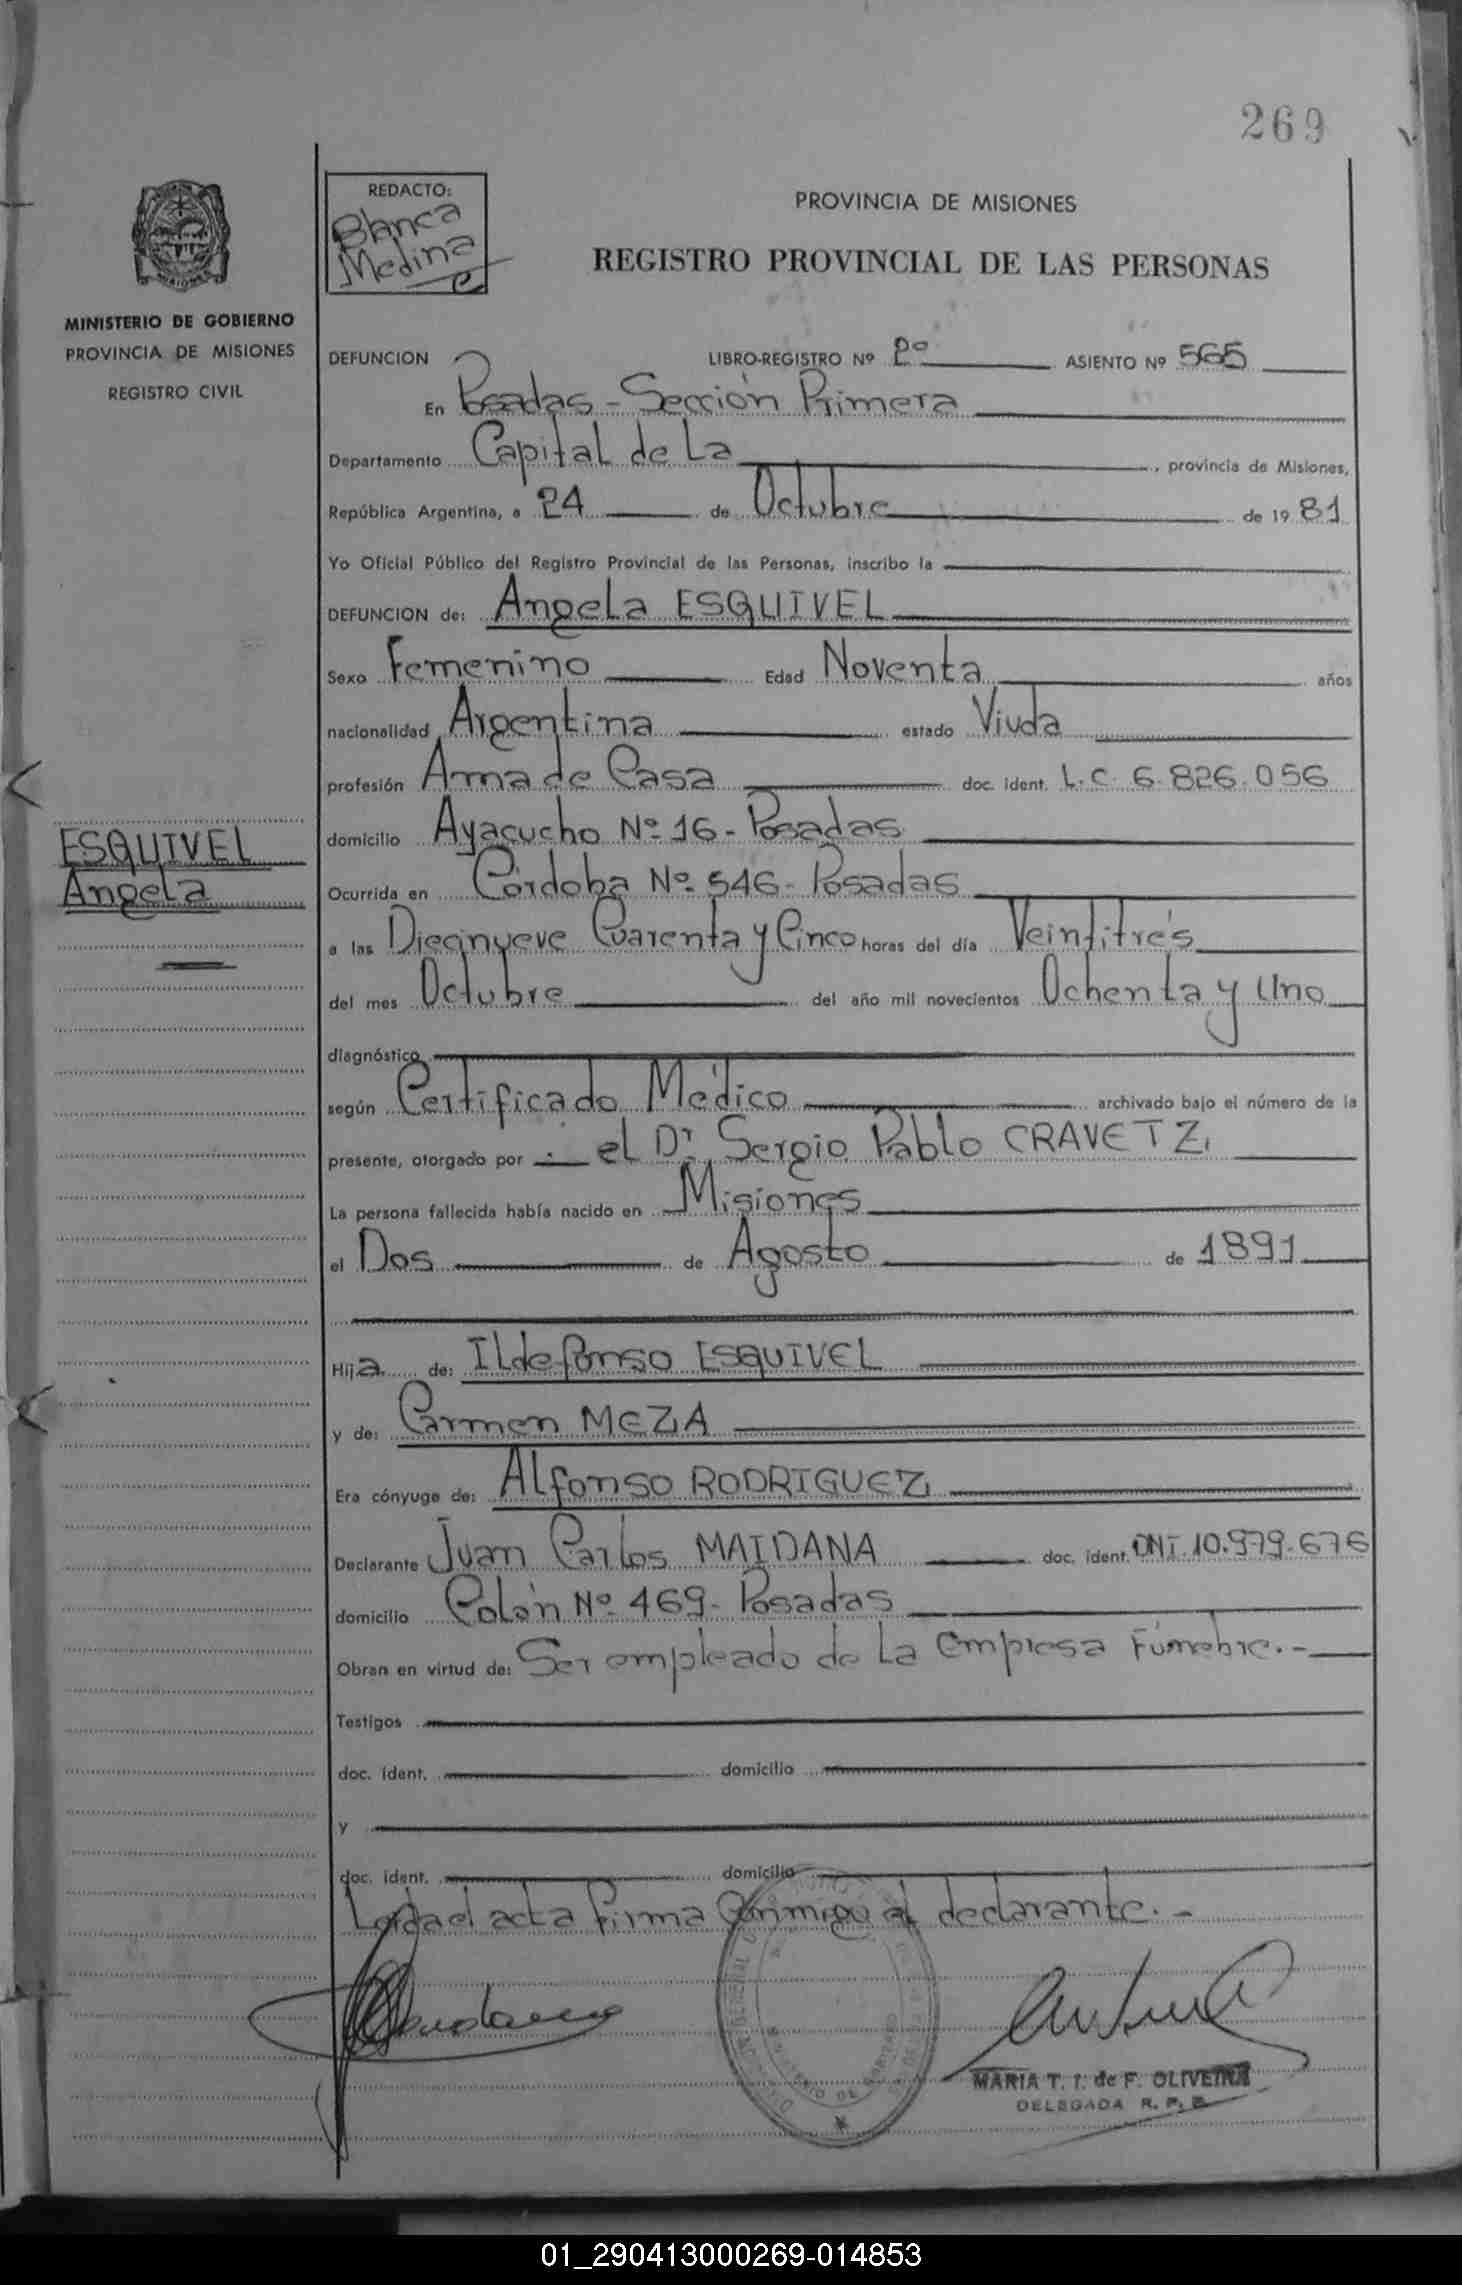 269
REDACTO:
Blanca
Medina
PROVINCIA DE MISIONES
REGISTRO PROVINCIAL DE LAS PERSONAS
MINISTERIO DE GOBIERNO
PROVINCIA DE MISIONES
REGISTRO CIVIL
DEFUNCION LIBRO-REGISTRO Nº 2º ASIENTO Nº 565
En Posadas - Sección Primera
Departamento Capital de La, provincia de Misiones,
República Argentina, a 24 de Octubre de 1981
Yo Oficial Público del Registro Provincial de las Personas, inscribo la
DEFUNCION de: Angela ESQUIVEL
Sexo Femenino Edad Noventa años
nacionalidad Argentina estado Viuda
profesión Ama de Casa doc. ident. L.C. 6.826.056
ESQUIVEL
Angela
domicilio Ayacucho Nº 16 - Posadas
Ocurrida en Córdoba Nº 546 - Posadas
a las Diecinueve Cuarenta y Cinco horas del día Veintitrés
del mes Octubre del año mil novecientos Ochenta y Uno
diagnóstico
según Certificado Médico archivado bajo el número de la
presente, otorgado por el Dr Sergio Pablo CRAVETZ
La persona fallecida había nacido en Misiones
el Dos de Agosto de 1891
Hija de: Ildefonso ESQUIVEL
y de: Carmen MEZA
Era cónyuge de: Alfonso RODRIGUEZ
Declarante Juan Carlos MAIDANA doc. ident. DNI. 10.979.676
domicilio Colón Nº 469 - Posadas
Obran en virtud de: Ser empleado de la empresa Fúnebre.-
Testigos
doc. ident. domicilio
y
doc. ident. domicilio
Leída el acta firma conmigo el declarante.-
MARIA T. I. de F. OLIVEIRA
DELEGADA R. P. P.
01_290413000269-014853